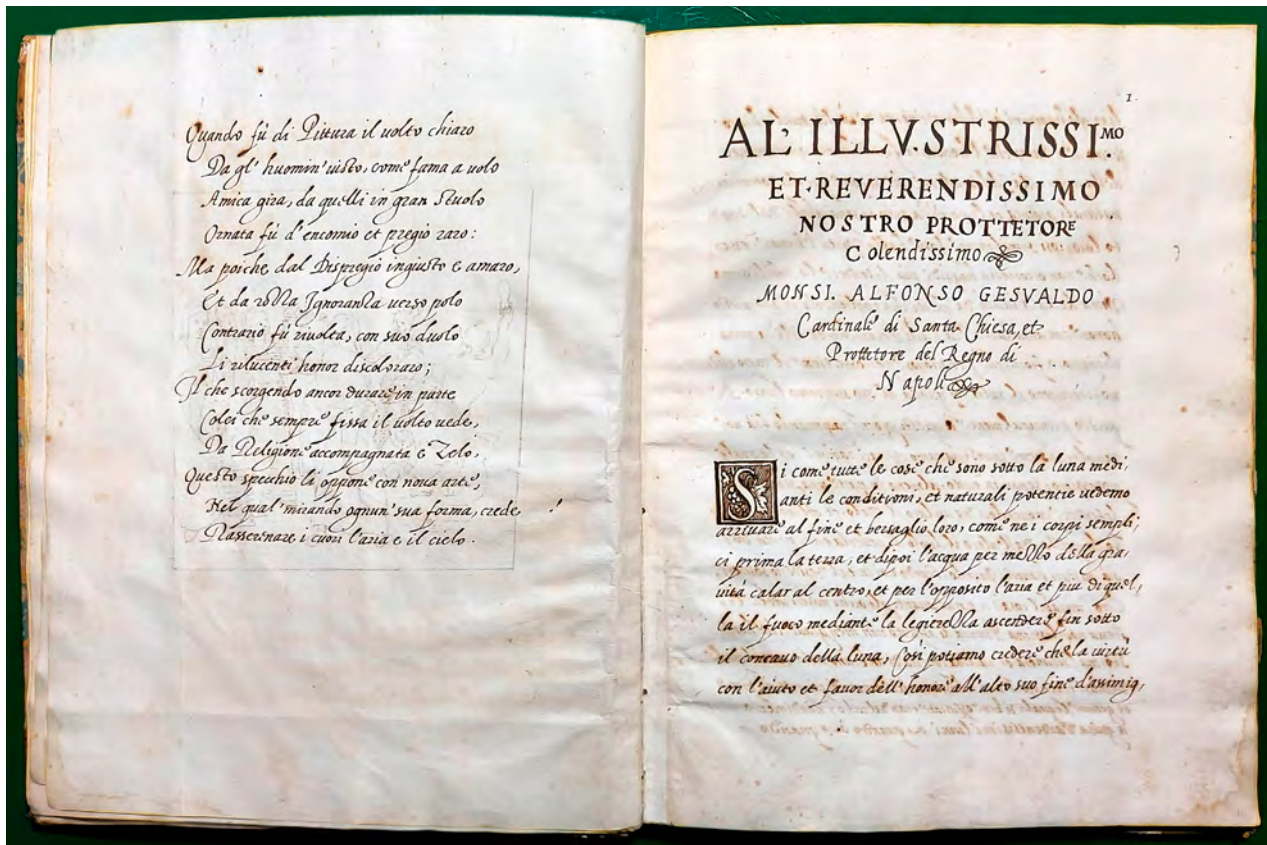 Quando fù di Pittura il uolto chiaro
Da gl' huomin' uisto, come fama a uolo
Amica gira, da quelli in gran stuolo
Ornata fú d'encomio et pregio raro:
Ma poiche dal Dispregio ingiusto e amaro,
Et da rozza Ignoranza verso polo
Contrario fú riuolta, con suo duolo
Li rilucenti honor discoloraro;
Il che scorgendo ancor durare in parte
Colei che sempre fissa il uolto uede,
Da Religione accompagnata e Zelo,
Questo specchio li oppone con noua arte,
Nel qual' mirando ognun' sua forma, crede
Rasserenare i cuori l'aria e il cielo.
1.
AL' ILLV.STRISSI.MO
ET·REVERENDISSIMO
NOSTRO PROTTETORE
Colendissimo
MONSI. ALFONSO GESVALDO
Cardinale di Santa Chiesa, et
Prottetore del Regno di
Napoli
Si come tutte le cose che sono sotto la luna medi,
anti le conditioni, et naturali potentie uedemo
arriuare al fine et bersaglio loro, come ne i corpi sempli,
ci prima la terra, et dipoi l'acqua per mezzo della gra,
uità calar al centro, et per l'opposito l'aria et piu di quel,
la il fuoco mediante la legierezza ascendere fin sotto
il concauo della luna, Cosi potiamo credere che la uirtù
con l'aiuto et fauor dell' honore all' alto suo fine d'assimig,